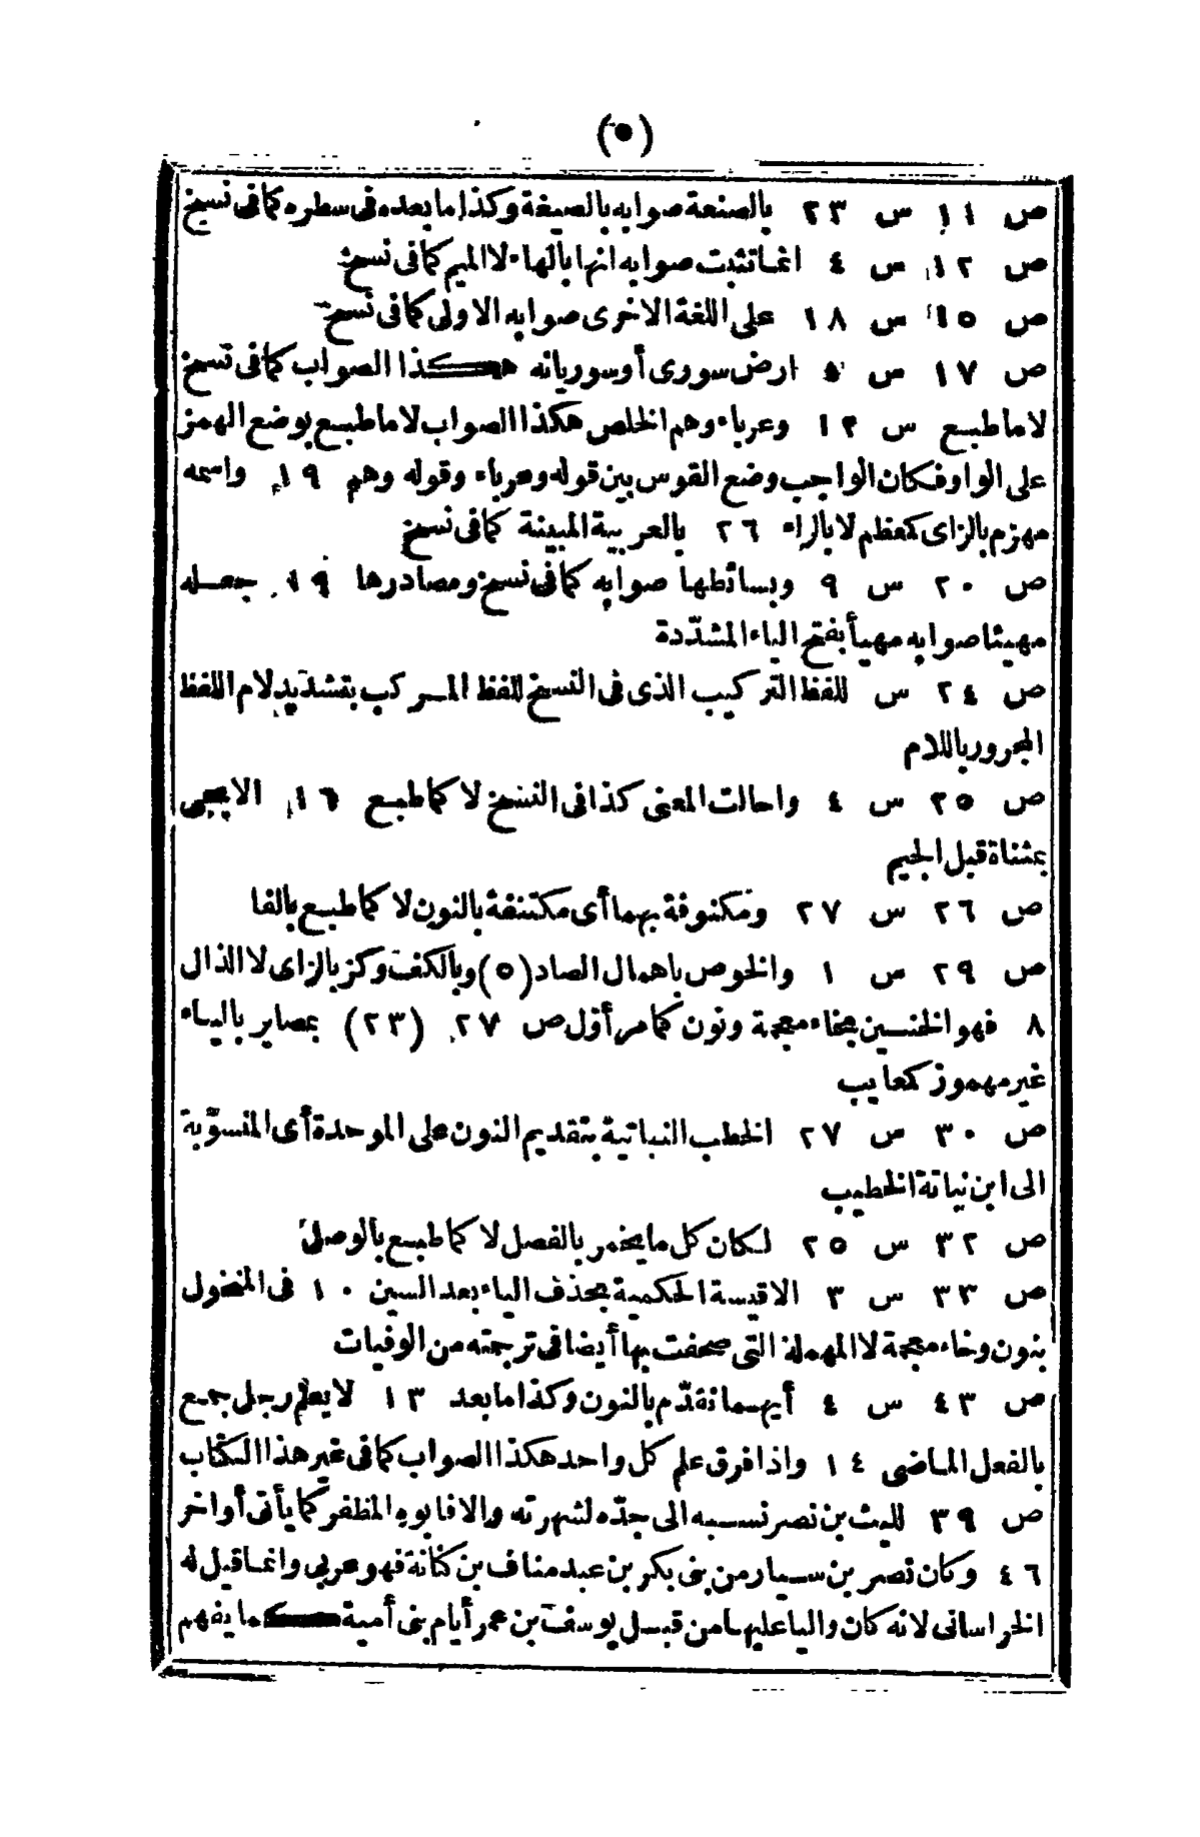 (٥)
ص ١١ س ٢٣ بالصنعة صوابه بالصيغة وكذا ما بعده فى سطره كما فى نسخ
ص ١٢ س ٤ انما تثبت صوابه انها بالهاء لا الميم كما فى نسخ
ص ١٥ س ١٨ على اللغة الاخرى صوابه الاولى كما فى نسخ
ص ١٧ س ٥ ارض سورى أو سوريانه هكذا الصواب كما فى نسخ
لا ما طبع س ١٢ وعرباء وهم الخلص هكذا الصواب لا ما طبع بوضع الهمز
على الواو فكان الواجب وضع القوس بين قوله وعرباء وقوله وهم ١٩ واسمه
مهزم بالزاى كمعظم لا بالراء ٢٦ بالعربية المبينة كما فى نسخ
ص ٢٠ س ٩ وبسائطها صوابه كما فى نسخ ومصادرها ١٩ جعله
مهيئا صوابه مهيأ بفتح الياء المشدّدة
ص ٢٤ س للفظ التركيب الذى فى النسخ للفظ المركب بتشديد لام اللفظ
المجرور باللام
ص ٢٥ س ٤ واحالت المعنى كذا فى النسخ لا كما طبع ١٦ الايجى
بمثناة قبل الجيم
ص ٢٦ س ٢٧ ومكنوفة بهما أى مكتنفة بالنون لا كما طبع بالفا
ص ٢٩ س ١ والخوص باهمال الصاد (٥) وبالكفت وكز بالزاى لا الذال
٨ فهو الخنسين بخاء معجمة ونون كما مر أوّل ص ٢٧ (٢٣) بمصاير بالياء
غير مهموز كمعايب
ص ٣٠ س ٢٧ الخطب النباتية بتقديم النون على الموحدة أى المنسوبة
الى ابن نباتة الخطيب
ص ٣٢ س ٢٥ لكان كل ما يخمر بالفصل لا كما طبع بالوصل
ص ٣٣ س ٣ الاقيسة الحكمية بحذف الياء بعد السين ١٠ فى المنخول
بنون وخاء معجمة لا المهملة التى صحفت بها أيضا فى ترجمته من الوفيات
ص ٤٣ س ٤ أيهما نقدّم بالنون وكذا ما بعد ١٣ لا يعلم رجل جمع
بالفعل الماضى ١٤ واذا فرق علم كل واحد هكذا الصواب كما فى غير هذا الكتاب
ص ٣٩ لليث بن نصر نسبه الى جدّه لشهرته والا فابوه المظفر كما يأتى أواخر
٤٦ وكان نصر بن سيار من بنى بكر بن عبد مناف بن كنانة فهو عربى وانما قيل له
الخراسانى لانه كان واليا عليها من قبل يوسف بن عمر أيام بنى أمية كما يفهم